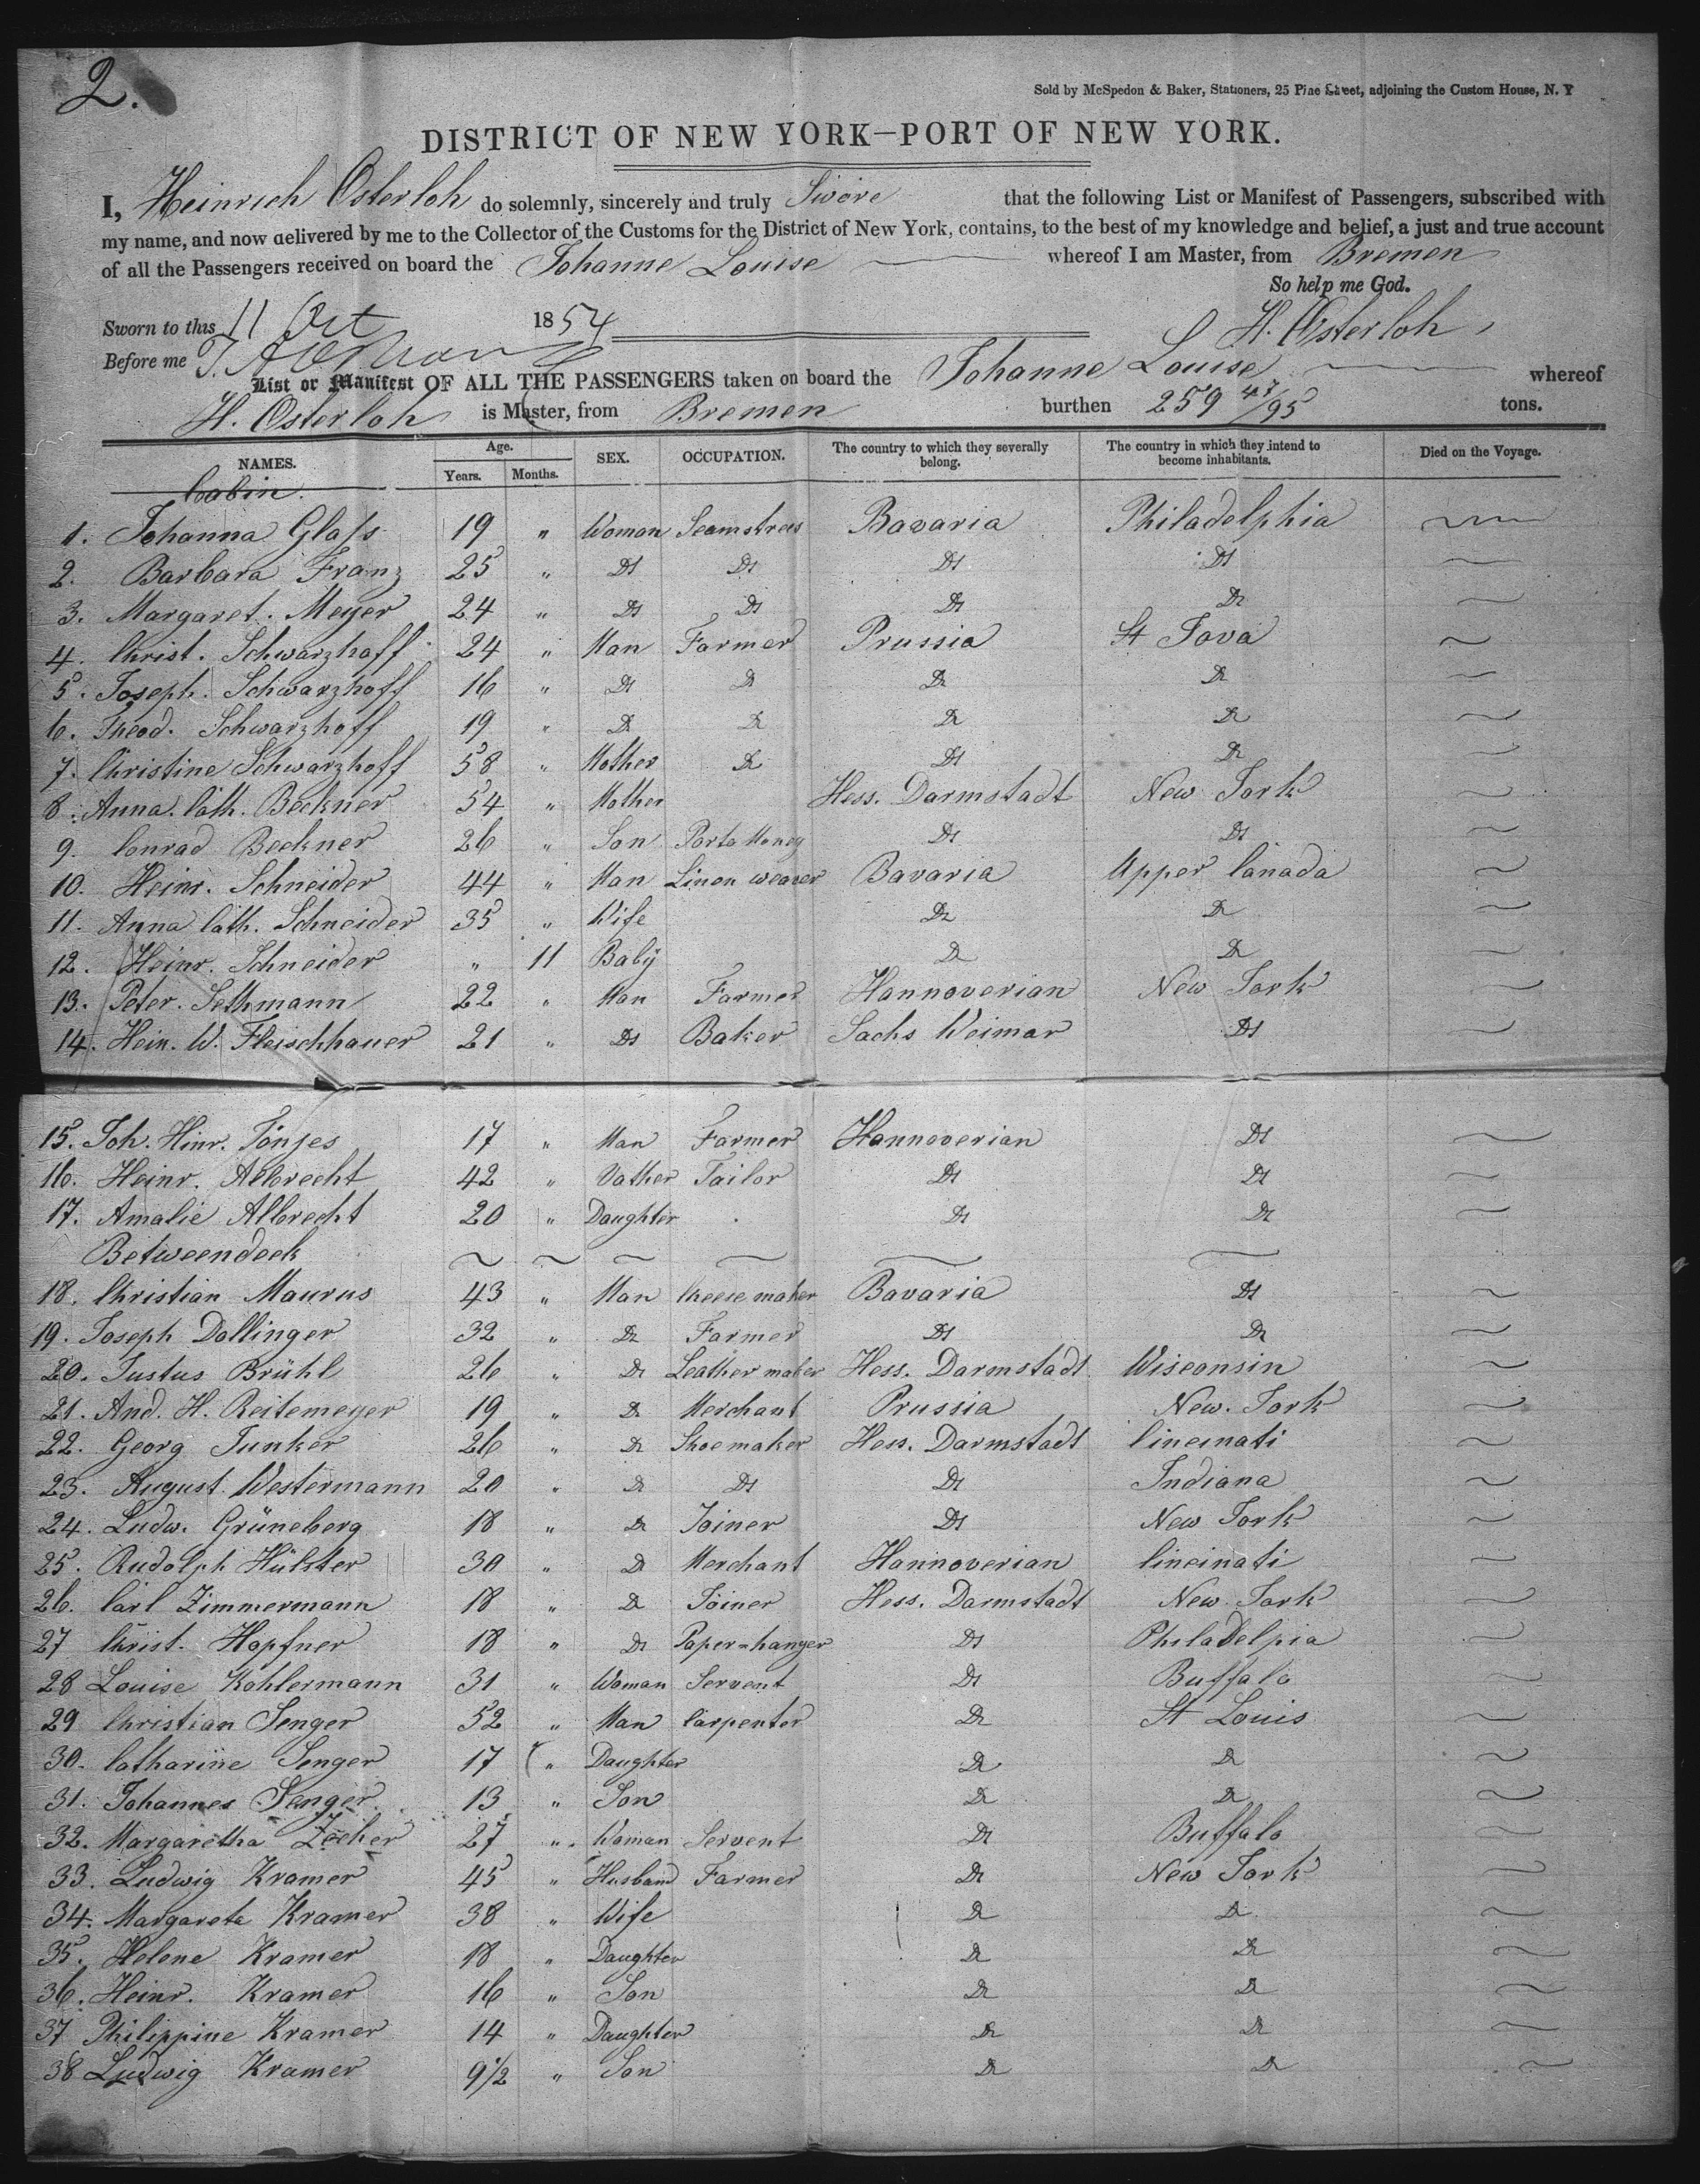 2.
Sold by McSpedon & Baker, Stationers, 25 Pine Street, adjoining the Custom House, N. Y
DISTRICT OF NEW YORK—PORT OF NEW YORK.
I, Heinrich Osterloh do solemnly, sincerely and truly Swore that the following List or Manifest of Passengers, subscribed with
my name, and now delivered by me to the Collector of the Customs for the District of New York, contains, to the best of my knowledge and belief, a just and true account
of all the Passengers received on board the Johanne Louise whereof I am Master, from Bremen
So help me God.
Sworn to this 11 Oct 1854 H. Osterloh
Before me
List or Manifest OF ALL THE PASSENGERS taken on board the Johanne Louise whereof
H. Osterloh is Master, from Bremen burthen 259 47/95 tons.
NAMES. Age. Years. Months. SEX. OCCUPATION. The country to which they severally belong. The country in which they intend to become inhabitants. Died on the Voyage.
Cabin.
1. Johanna Glass 19 " Woman Seamstrees Bavaria Philadelphia
2. Barbara Franz 25 " Do Do Do Do
3. Margaret. Meyer 24 " Do Do Do Do
4. Christ. Schwarzhoff 24 " Man Farmer Prussia St Jova
5. Joseph. Schwarzhoff 16 " Do Do Do Do
6. Theod. Schwarzhoff 19 " Do Do Do Do
7. Christine Schwarzhoff 58 " Mother Do Do Do
8. Anna. Cath. Beckner 54 " Mother Hess. Darmstadt New York
9. Conrad Beckner 26 " Son Porto Money Do Do
10. Heinr. Schneider 44 " Man Linen weaver Bavaria Upper Canada
11. Anna Cath. Schneider 35 " Wife Do Do
12. Heinr. Schneider " 11 Baby Do Do
13. Peter. Sethmann 22 " Man Farmer Hannoverian New York
14. Hein. W. Fleischhauer 21 " Do Baker Sachs Weimar Do
15. Joh. Hinr. Tönjes 17 " Man Farmer Hannoverian Do
16. Heinr. Albrecht 42 " Vather Tailor Do Do
17. Amalie Albrecht 20 " Daughter Do Do
Betweendeck
18. Christian Maurus 43 " Man Cheese maker Bavaria Do
19. Joseph Dollinger 32 " Do Farmer Do Do
20. Justus Brühl 26 " Do Leather maker Hess. Darmstadt Wisconsin
21. And. H. Reitemeyer 19 " Do Merchant Prussia New. York
22. Georg Junker 26 " Do Shoemaker Hess. Darmstadt Cincinati
23. August. Westermann 20 " Do Do Do Indiana
24. Ludw. Grüneberg 18 " Do Joiner Do New York
25. Rudolph Hülster 30 " Do Merchant Hannoverian Cincinati
26. Carl Zimmermann 18 " Do Joiner Hess. Darmstadt New York
27 Christ. Hopfner 18 " Do Paper=hanger Do Philadelpia
28 Louise Köhlermann 31 " Woman Servent Do Buffalo
29 Christian Senger 52 " Man Carpenter Do St Louis
30. Catharine Senger 17 " Daughter Do Do
31. Johannes Senger 13 " Son Do Do
32. Margaretha Zecher 27 " Woman Servent Do Buffalo
33. Ludwig Kramer 45 " Husband Farmer Do New York
34. Margarete Kramer 38 " Wife Do Do
35. Helene Kramer 18 " Daughter Do Do
36. Heinr. Kramer 16 " Son Do Do
37 Philippine Kramer 14 " Daughter Do Do
38 Ludwig Kramer 9 1/2 " Son Do Do